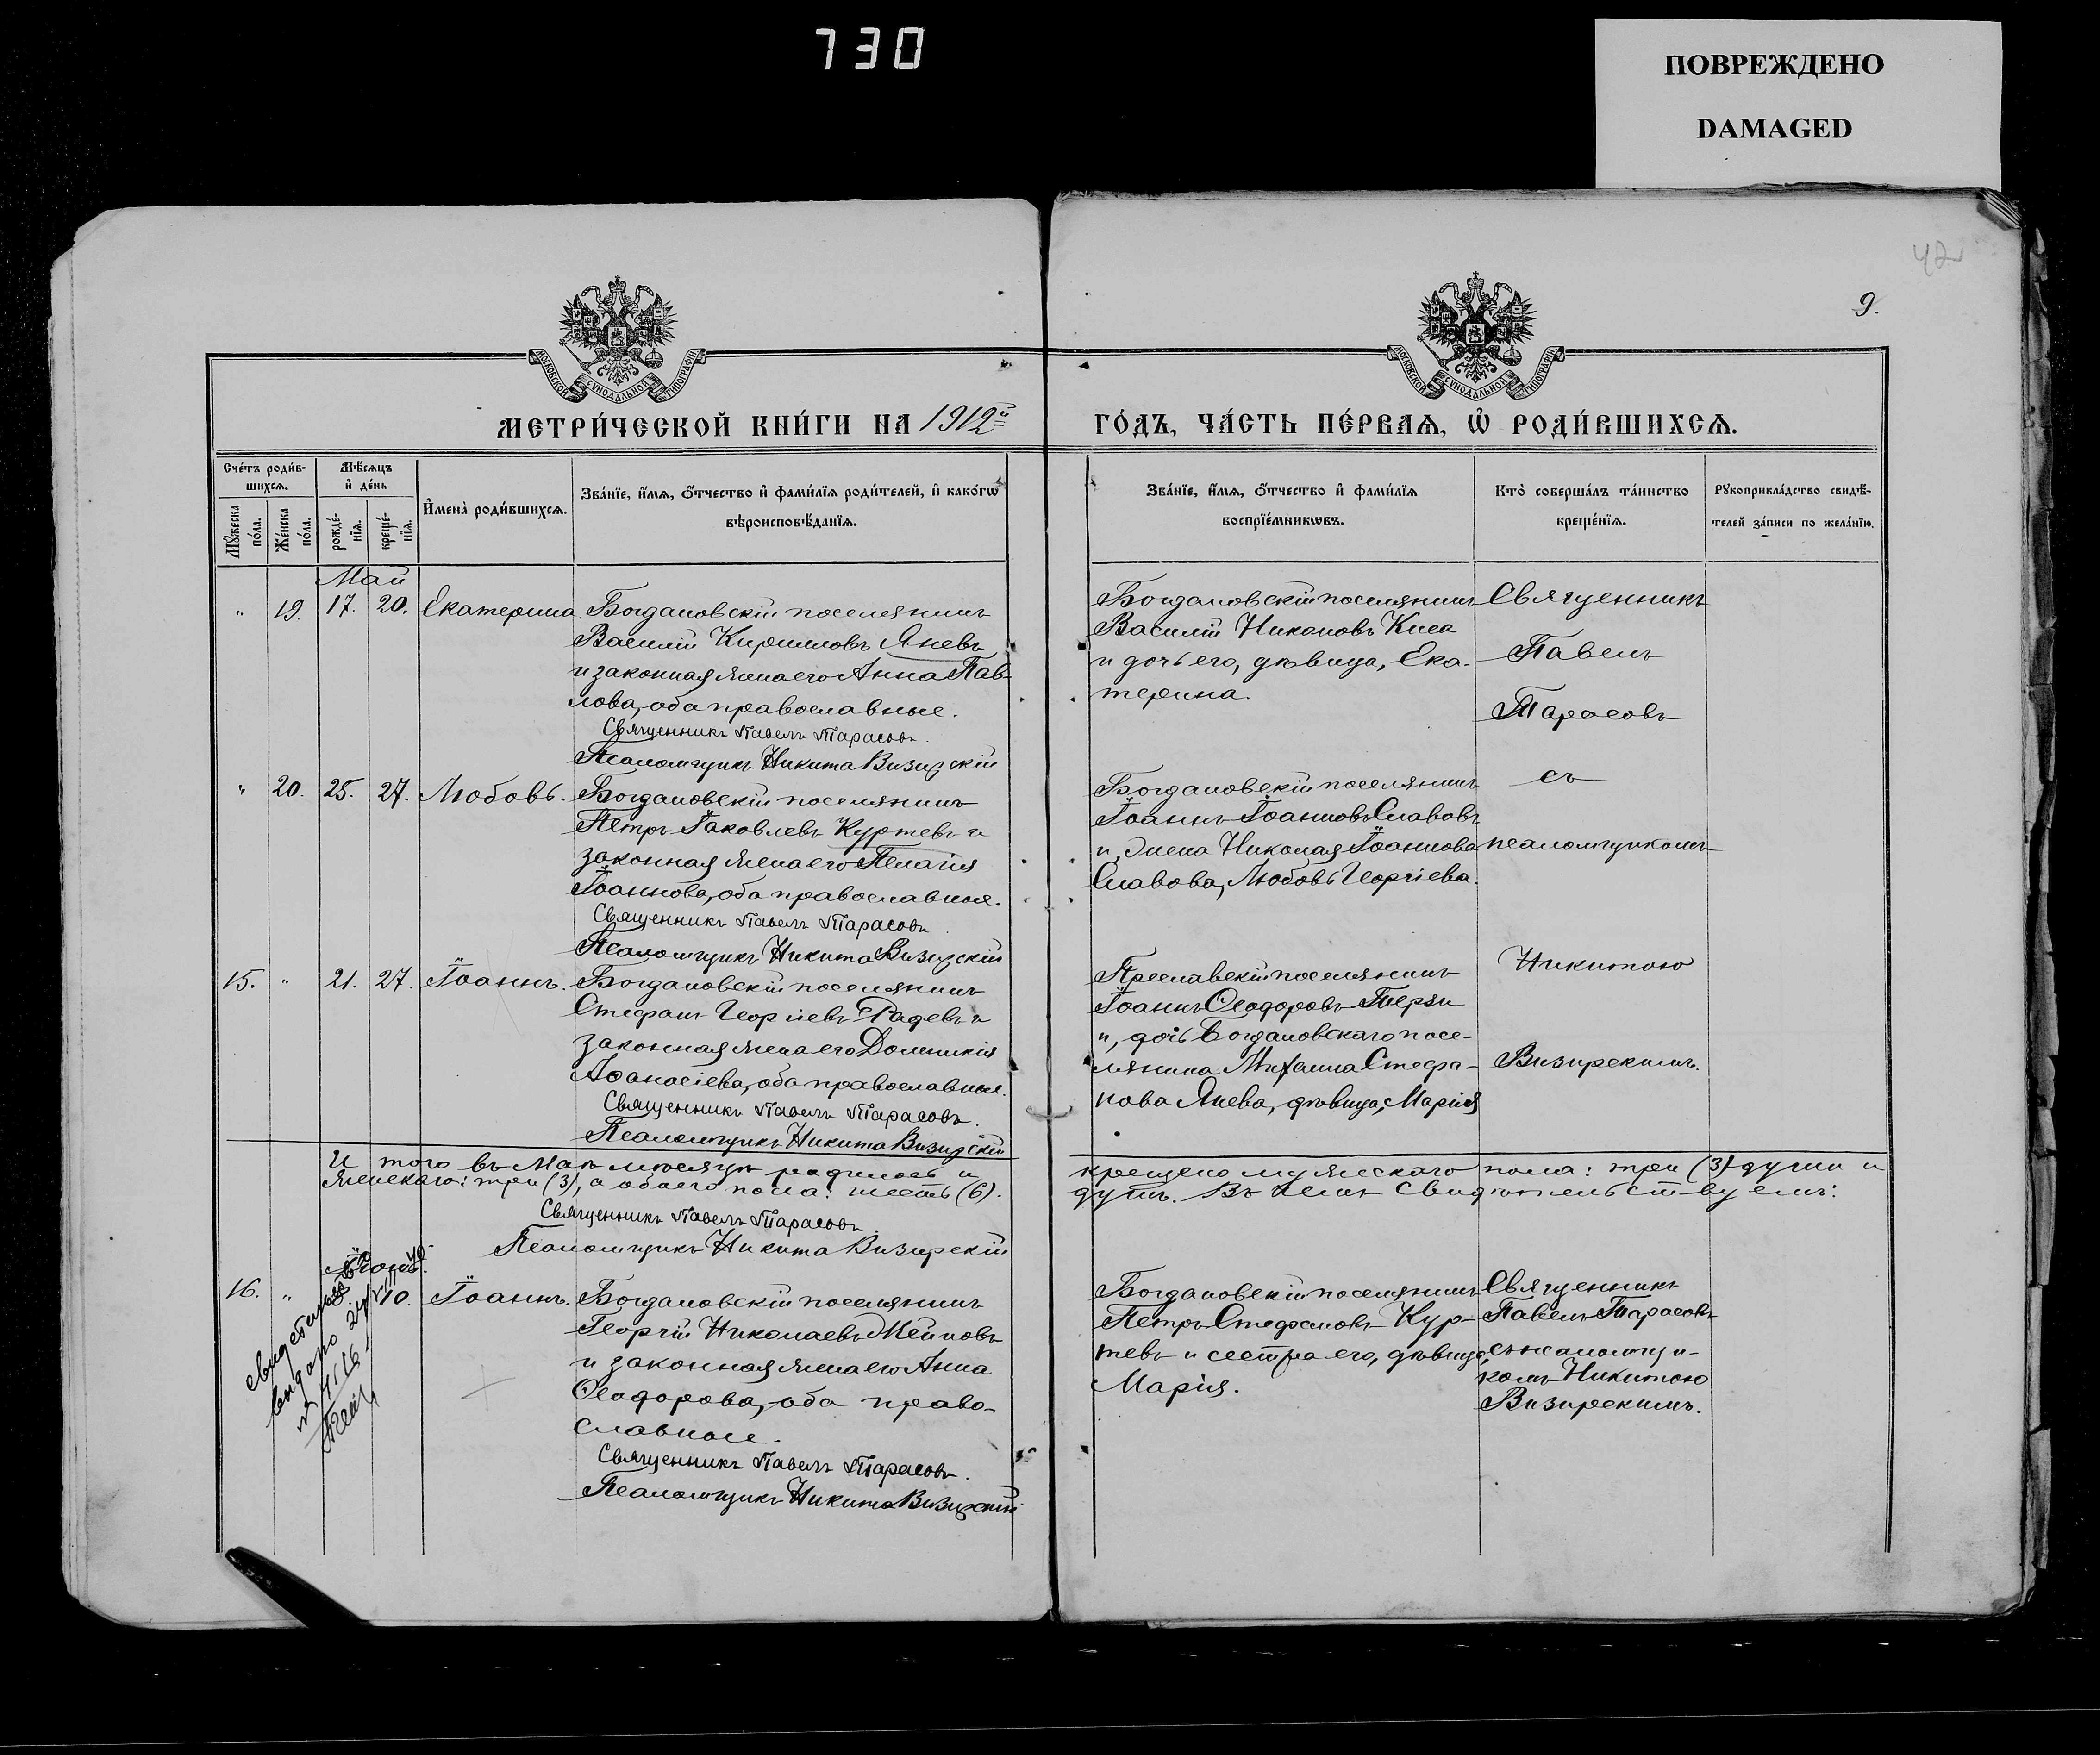 730
ПОВРЕЖДЕНО
DAMAGED
42
9.
МОСКОВСКОЙ СѴНОДАЛЬНОЙ ТИПОГРАФІИ
МОСКОВСКОЙ СѴНОДАЛЬНОЙ ТИПОГРАФІИ
МЕТРИ́ЧЕСКОЙ КНИ́ГИ НА 1912й
ГО́ДЪ, ЧА́СТЬ ПЕ́РВАѦ, Ѡ҆ РОДИ́ВШИХСѦ.
Сче́тъ роди́в-
шихсѧ.
Мꙋ́жеска по́ла.
Же́нска по́ла.
Мѣ́сѧцъ
и҆ де́нь
рожде́-
нїѧ.
креще́-
нїѧ.
И҆мена̀ роди́вшихсѧ.
Зва́нїе, и҆́мѧ, ѻ҆́тчество и҆ фами́лїѧ роди́телей, и҆ како́гѡ
вѣроисповѣ́данїѧ.
Зва́нїе, и҆́мѧ, ѻ҆́тчество и҆ фами́лїѧ
воспрїе́мникѡвъ.
Кто̀ соверша́лъ та́инство
креще́нїѧ.
Рꙋкоприкла́дство свидѣ́-
телей за́писи по жела́нїю.
Май
" 19. 17. 20. Екатерина. Богдановскій поселянинъ
Василій Кирилловъ Яневъ
и законная жена его Анна Пав-
лова, оба православные.
Священникъ Павелъ Тарасовъ.
Псаломщикъ Никита Визирскій
Богдановскій поселянинъ
Василій Никоновъ Киса
и дочь его, дѣвица, Ека-
терина.
Священникъ
Павелъ
Тарасовъ
" 20. 25. 27. Любовь. Богдановскій поселянинъ
Петръ Іаковлевъ Куртевъ и
законная жена его Пелагія
Іоаннова, оба православные.
Священникъ Павелъ Тарасовъ
Псаломщикъ Никита Визирскій
Богдановскій поселянинъ
Іоаннъ Іоанновъ Славовъ
и, жена Николая Іоаннова
Славова, Любовь Георгіева.
съ
псаломщикомъ
15. " 21. 27. Іоаннъ. Богдановскій поселянинъ
Стефанъ Георгіевъ Радевъ и
законная жена его Домникія
Аѳанасіева, оба православные.
Священникъ Павелъ Тарасовъ.
Псаломщикъ Никита Визирскій
Преславскій поселянинъ
Іоаннъ Ѳеодоровъ Терзи
и, дочь Богдановскаго посе-
лянина Михаила Стефа-
нова Янева, дѣвица, Марія
Никитою
Визирскимъ.
И того въ Маѣ мѣсяцѣ родилось и
крещено мужескаго пола: три (3) души и
женскаго: три (3), а обоего пола: шесть (6).
душъ. Въ чемъ свидѣтельствуемъ:
Священникъ Павелъ Тарасовъ
Псаломщикъ Никита Визирскій
Іюнь.
16. " 10. Іоаннъ. Богдановскій поселянинъ
Георгій Николаевъ Мейновъ
и законная жена его Анна
Ѳеодорова, оба право-
славные.
Священникъ Павелъ Тарасовъ.
Псаломщикъ Никита Визирскій
Богдановскій поселянинъ
Петръ Стефановъ Кур-
тевъ и сестра его, дѣвица,
Марія.
Священникъ
Павелъ Тарасовъ
съ псаломщи-
комъ Никитою
Визирскимъ.
выдано